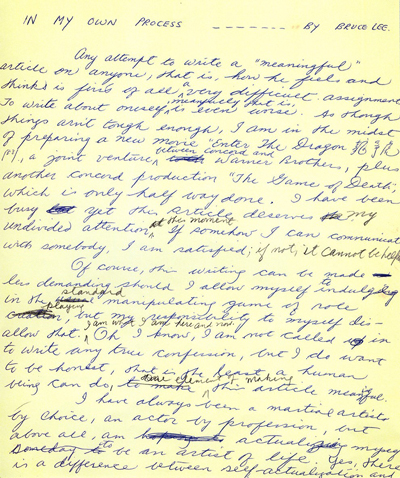 IN MY OWN PROCESS ------- BY BRUCE LEE.
Any attempt to write a "meaningful"
article on anyone, that is, how he feels and
thinks is first of all a very difficult assignment
To write about oneself, meaningfully that is, is even worse. As though
things arn't tough enough, I am in the midst
of preparing a new movie "Enter The Dragon
, a joint venture between concord and Warner Brothers, plus
another concord production "The Game of Death,"
which is only half way done. I have been
busy yet this article deserves my
undivided attention at this moment. If somehow I can communicate
with somebody, I am satisfied; if not, it cannot be helped
Of course, this writing can be made
less demanding should I allow myself to indulge
in the standard manipulating game of role
playing, but my responsibility to myself dis-
allow that. Oh I know, I am not called in
to write any true confusion, but I do want
to be honest, that is the least a human
being can do, making this article meaningful.
I have always been a martial artist
by choice, an actor by profession, but
above all, am actualizing myself
to be an artist of life. Yes, there
is a difference between self-actualization and